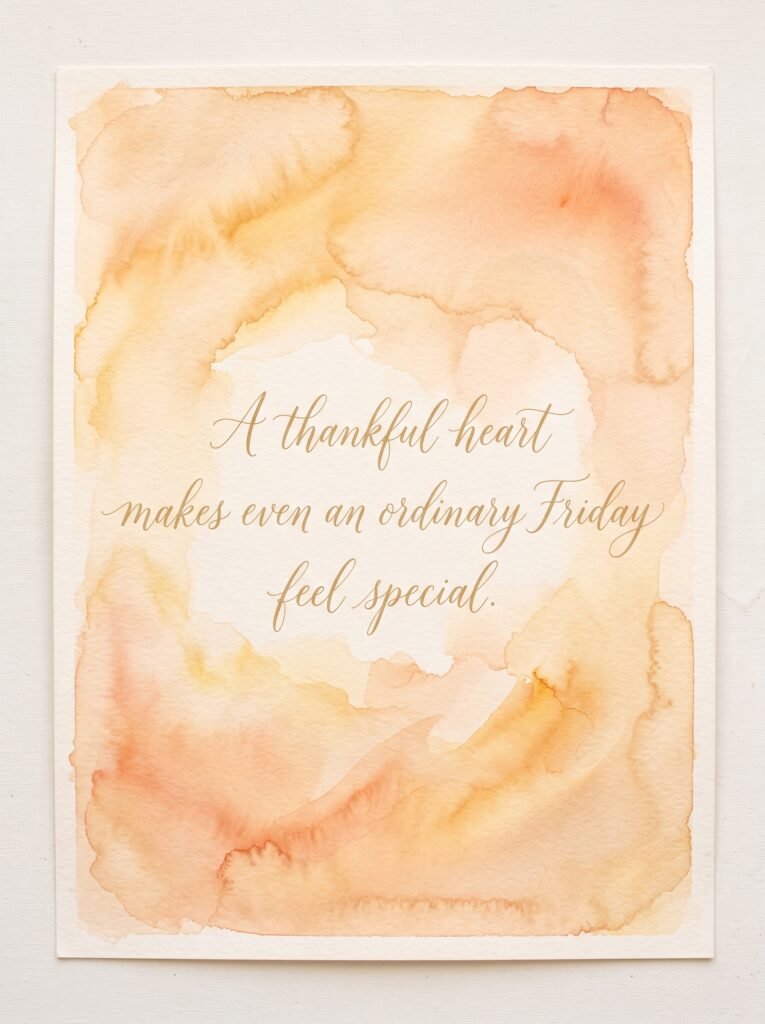 A thankful heart
makes even an ordinary Friday
feel special.